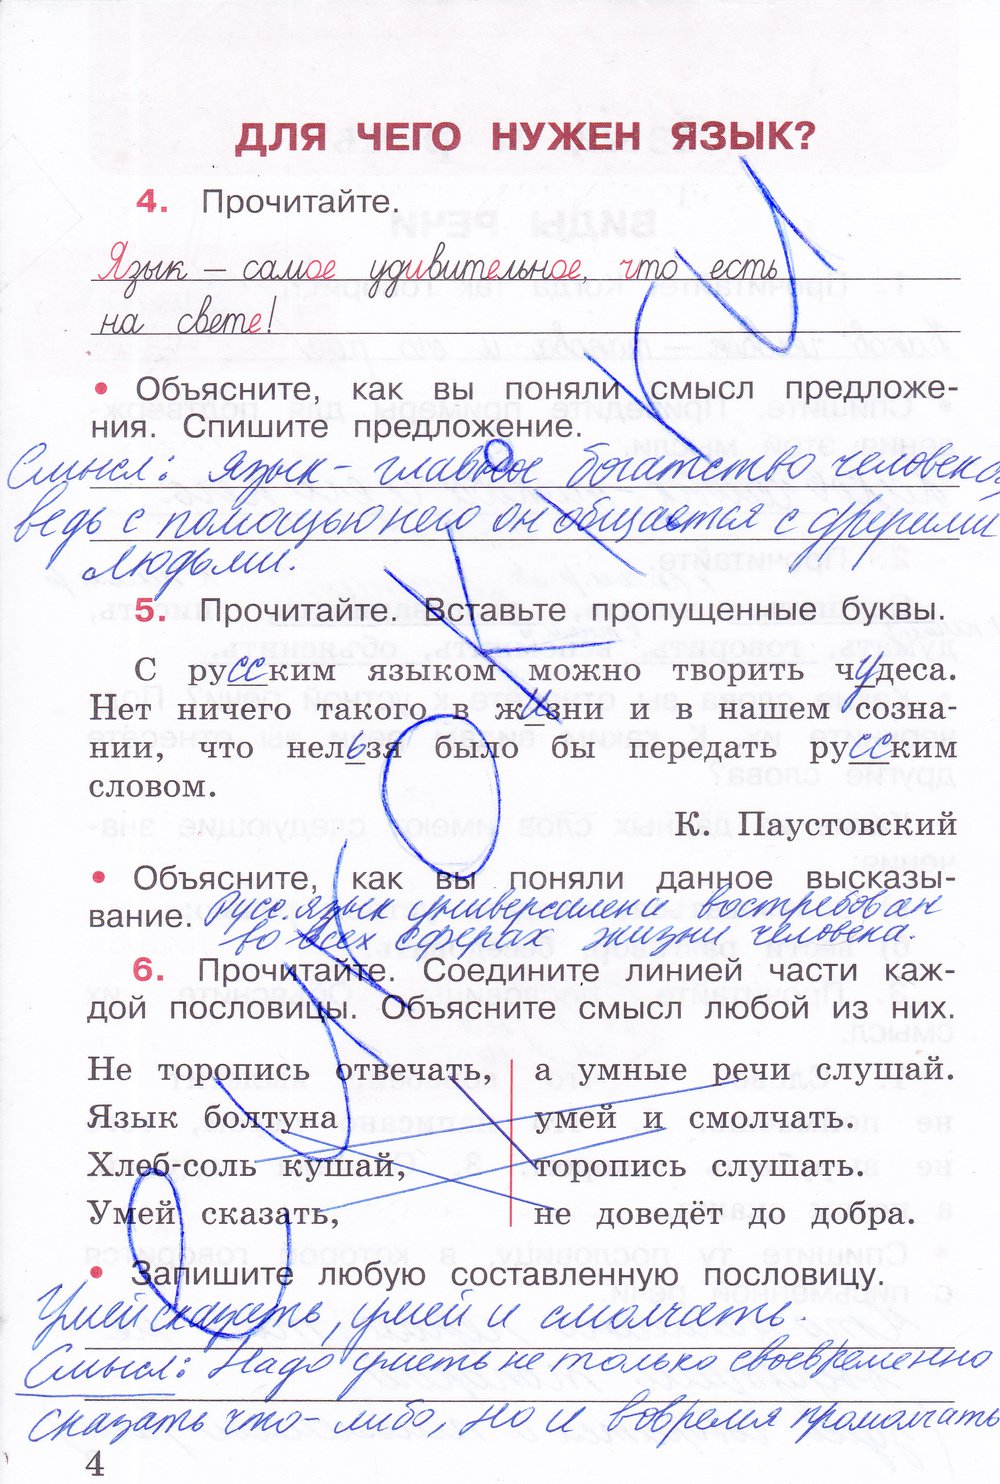 ДЛЯ ЧЕГО НУЖЕН ЯЗЫК?
4. Прочитайте.
Язык – самое удивительное, что есть
на свете!
• Объясните, как вы поняли смысл предложе-
ния. Спишите предложение.
Смысл: язык - главное богатство человека,
ведь с помощью него он общается с другими
людьми.
5. Прочитайте. Вставьте пропущенные буквы.
С русским языком можно творить чудеса.
Нет ничего такого в жизни и в нашем созна-
нии, что нельзя было бы передать русским
словом.
К. Паустовский
• Объясните, как вы поняли данное высказы-
вание. Русс. язык универсален и востребован
во всех сферах жизни человека.
6. Прочитайте. Соедините линией части каж-
дой пословицы. Объясните смысл любой из них.
Не торопись отвечать, а умные речи слушай.
Язык болтуна умей и смолчать.
Хлеб-соль кушай, торопись слушать.
Умей сказать, не доведёт до добра.
• Запишите любую составленную пословицу.
Умей сказать, умей и смолчать.
Смысл: Надо уметь не только своевременно
сказать что-либо, но и вовремя промолчать
4